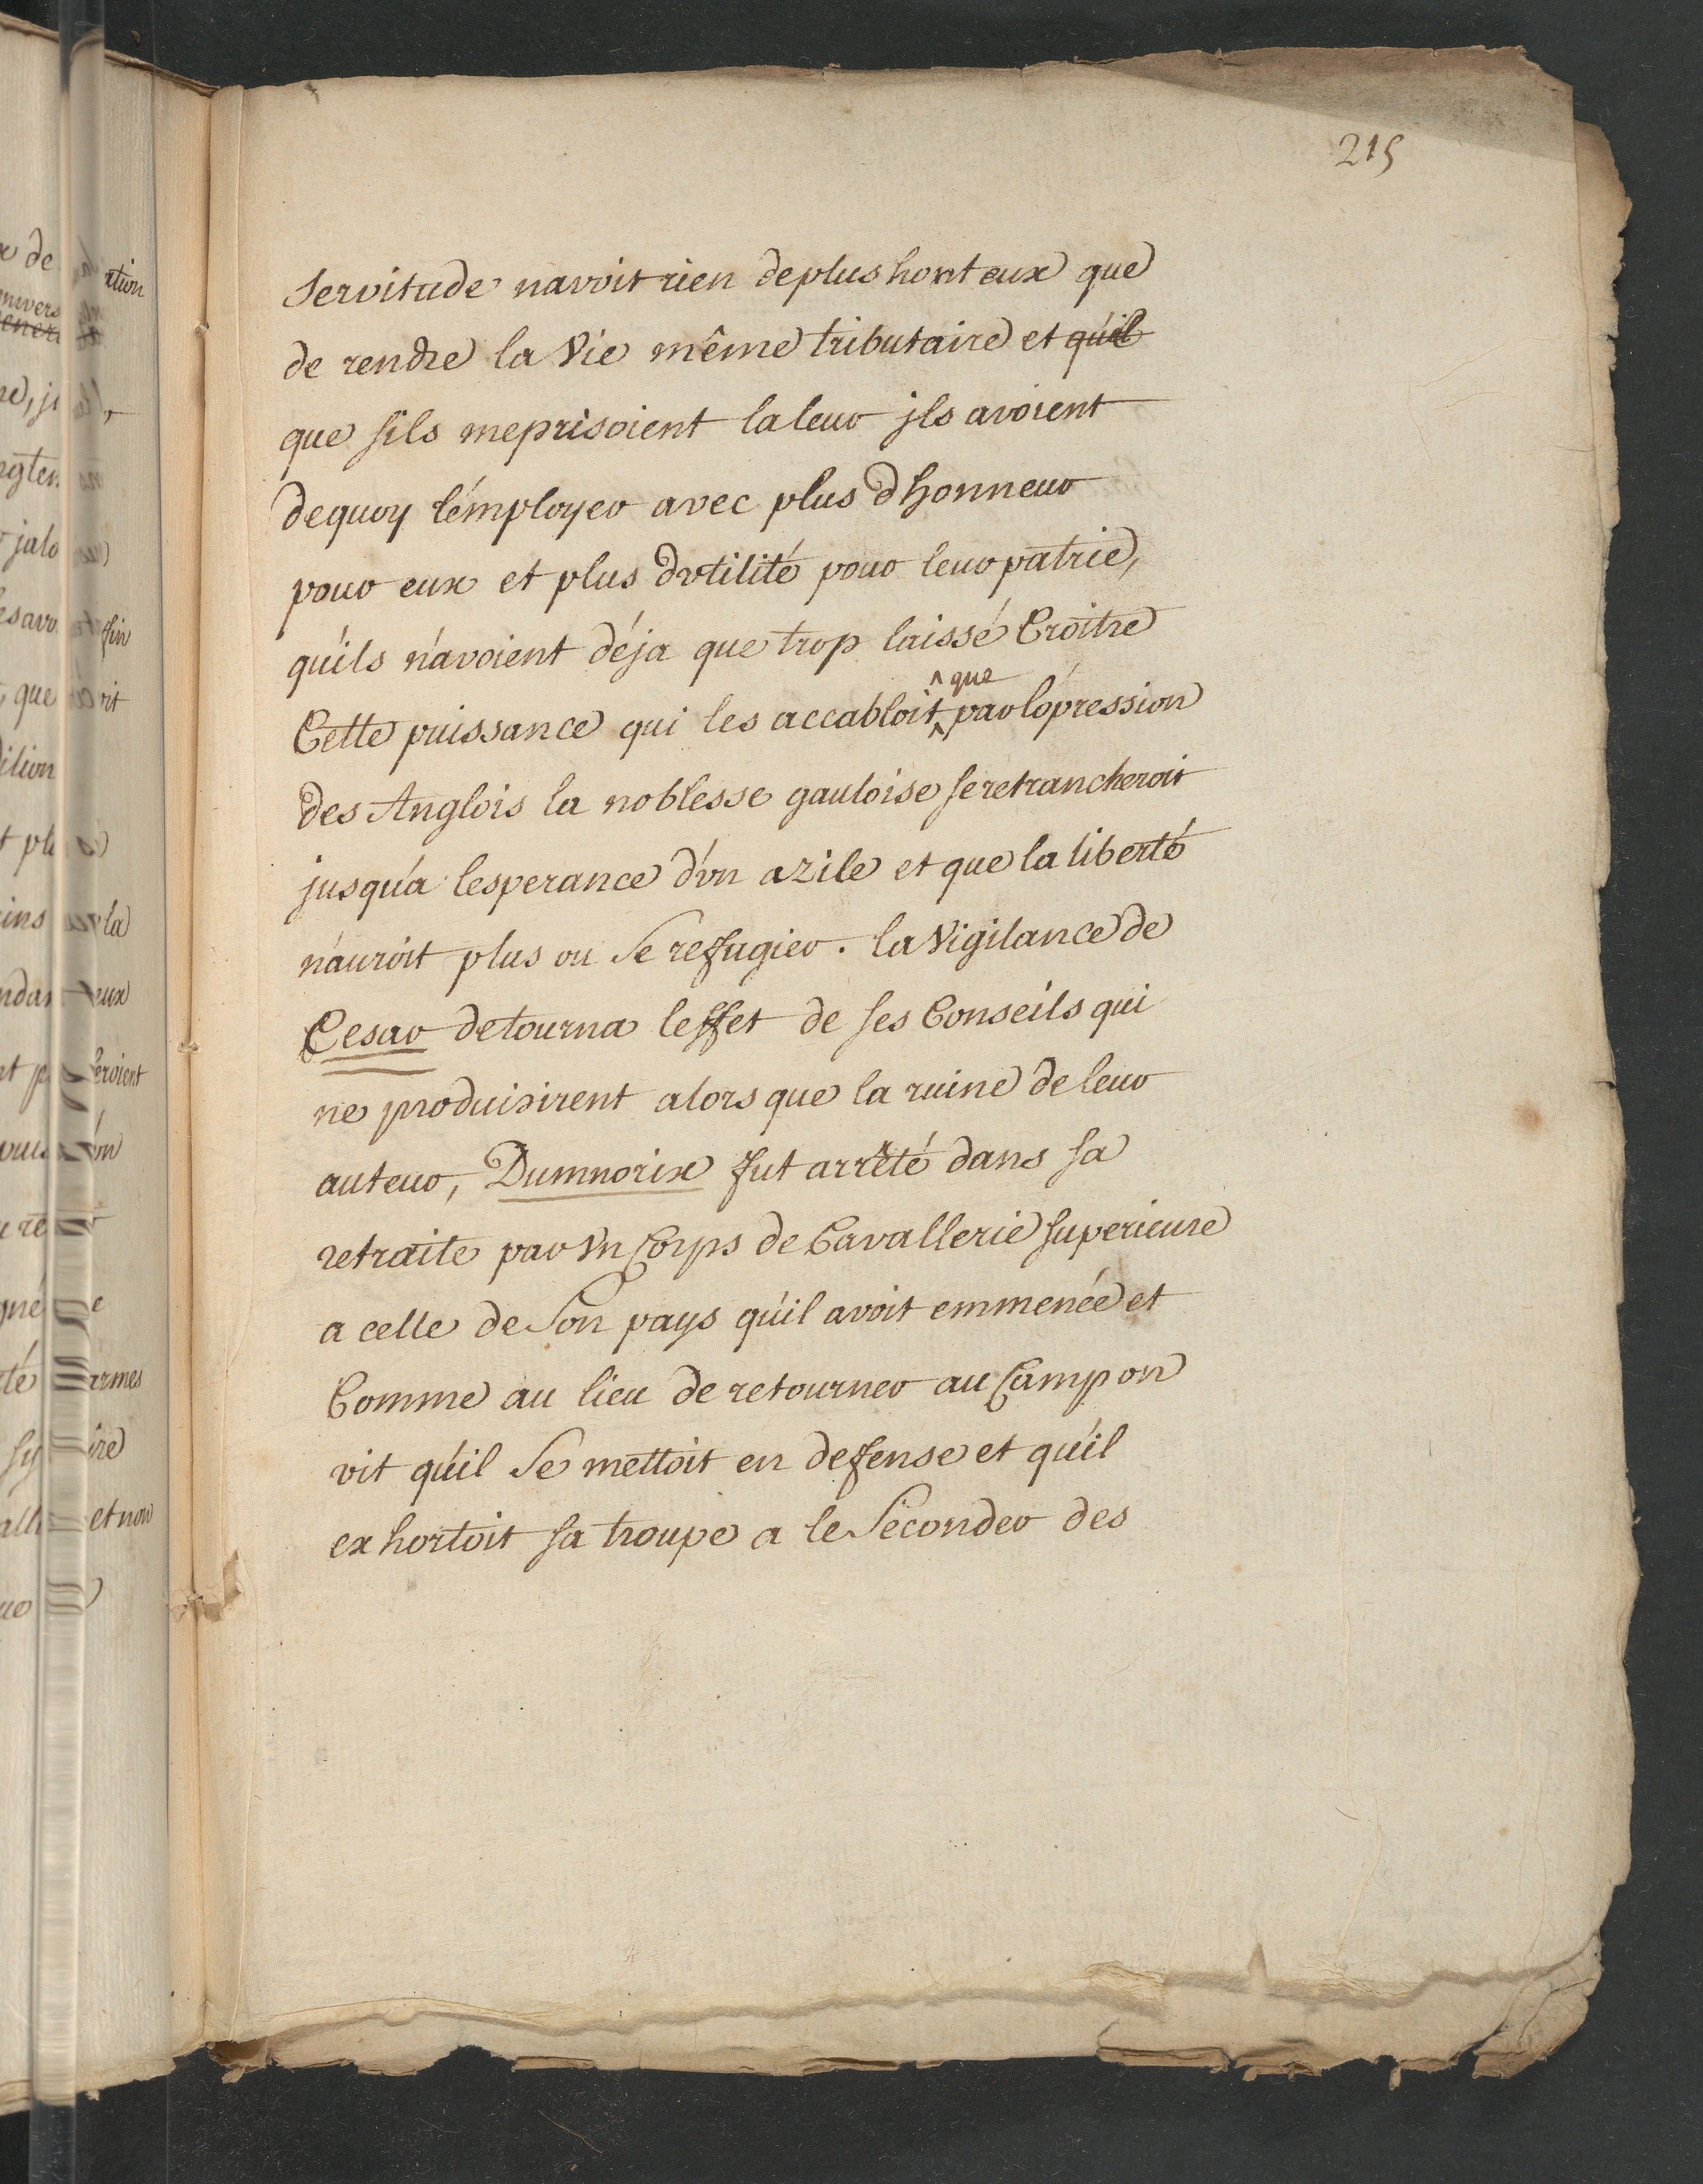 215
Servitude navoit rien de plus honteux que
de rendre la Vie même tributaire et qu'il
que s'ils meprisoient la leur ils avoient
dequoy l'employer avec plus d'honneur
pour eux et plus d'vtilité pour leur patrie,
qu'ils n'avoient déja que trop laissé Croître
^ que
Cette puissance qui les accabloit ^ par l'opression
des Anglois la noblesse gauloise se retrancheroit
jusqu'à lesperance d'vn azile et que la liberté
n'auroit plus ou se refugier. la Vigilance de
Cesar detourna leffet de ses Conseils qui
ne produisirent alors que la ruine de leur
auteur, Dumnorix fut arrêté dans sa
retraite par Vn Corps de Cavallerie superieure
a celle de Son pays qu'il avoit emmenée et
Comme au lieu de retourner au Camp on
vit qu'il Se mettoit en defense et qu'il
exhortoit sa troupe a le Seconder des